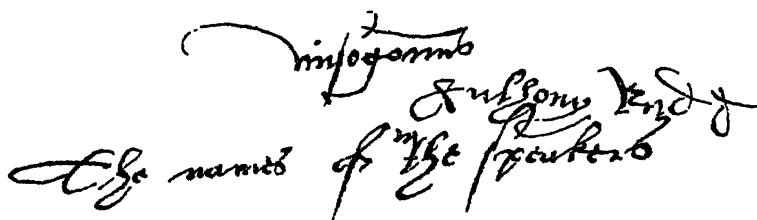 Misogonus
Anthony
The names of the speakers